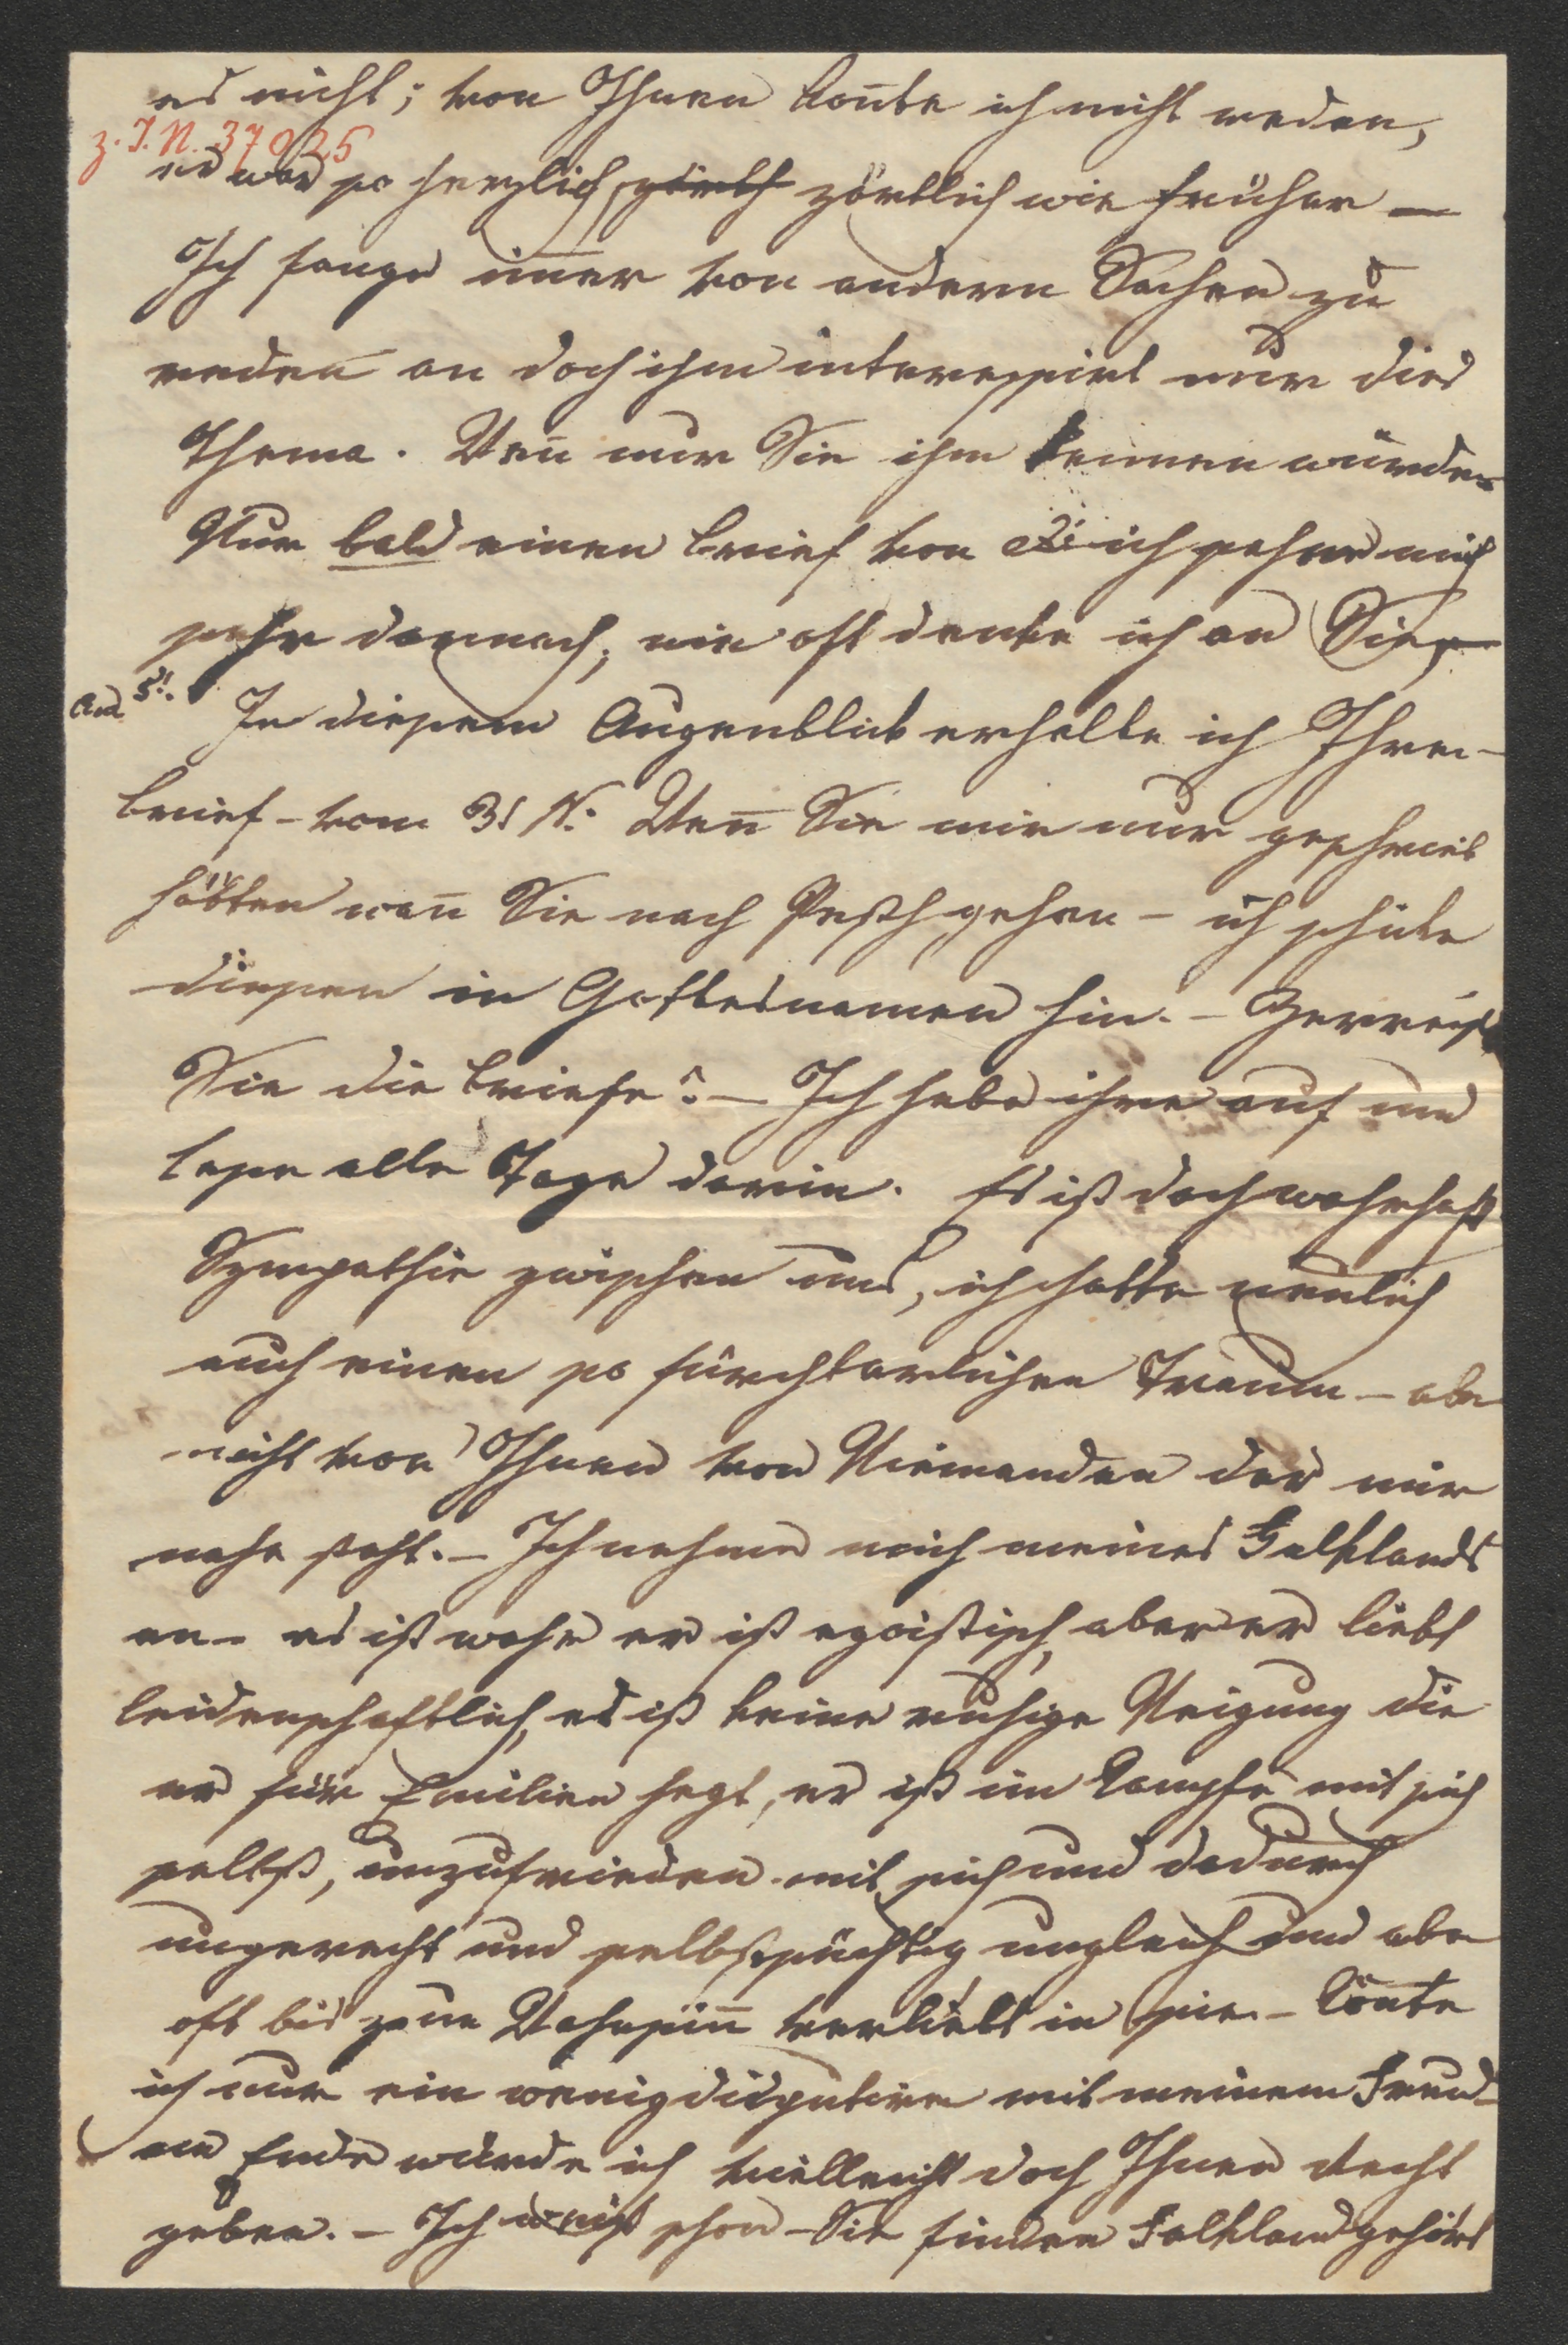 es nicht; von Ihnen kon̄te ich nicht reden,
z. I.N. 37025
er war so herzlich, zärtl zärtlich wie früher —
Ich fange im̄er von andern Sachen zu
reden an doch ihm interessirt nur dies
Thema. Wen̄ nur Sie ihn kennen würden
Nur bald einen Brief von ich sehne mich
sehr darnach; wie oft denke ich an Sie,
Am 5t. In diesem Augenblick erhalte ich Ihren
Brief – vom 31 Wen̄ Sie mir nur geschrieb
hätten wan̄ Sie nach Pesth gehen – ich schicke
diesen in Gottesnamen hin. – Zerreißt
Sie die Briefe? – Ich hebe ihre auf und
lese alle Tage darin. Es ist doch wahrhaft
Sympathie zwischen uns, ich hatte neulich
auch einen so fürchterlichen Traum – aber
nicht von Ihnen von Niemanden der mir
nahe steht. – Ich nehme mich meines Falklands
an – es ist wahr er ist egoistisch, aber er liebt
leidenschaftlich, es ist keine ruhige Neigung die
er für Emilien hegt, er ist im Kampfe mit sich
selbst, unzufrieden mit sich und dadurch
ungerecht und selbstsüchtig ungleich und aber
oft bis zum Wahnsin̄ verliebt in sie. – Kön̄te
ich nur ein wenig disputiren mit meinem Freud
am Ende würde ich vielleicht doch Ihnen Recht
geben. – Ich weiß schon – Sie finden Falkland gehört